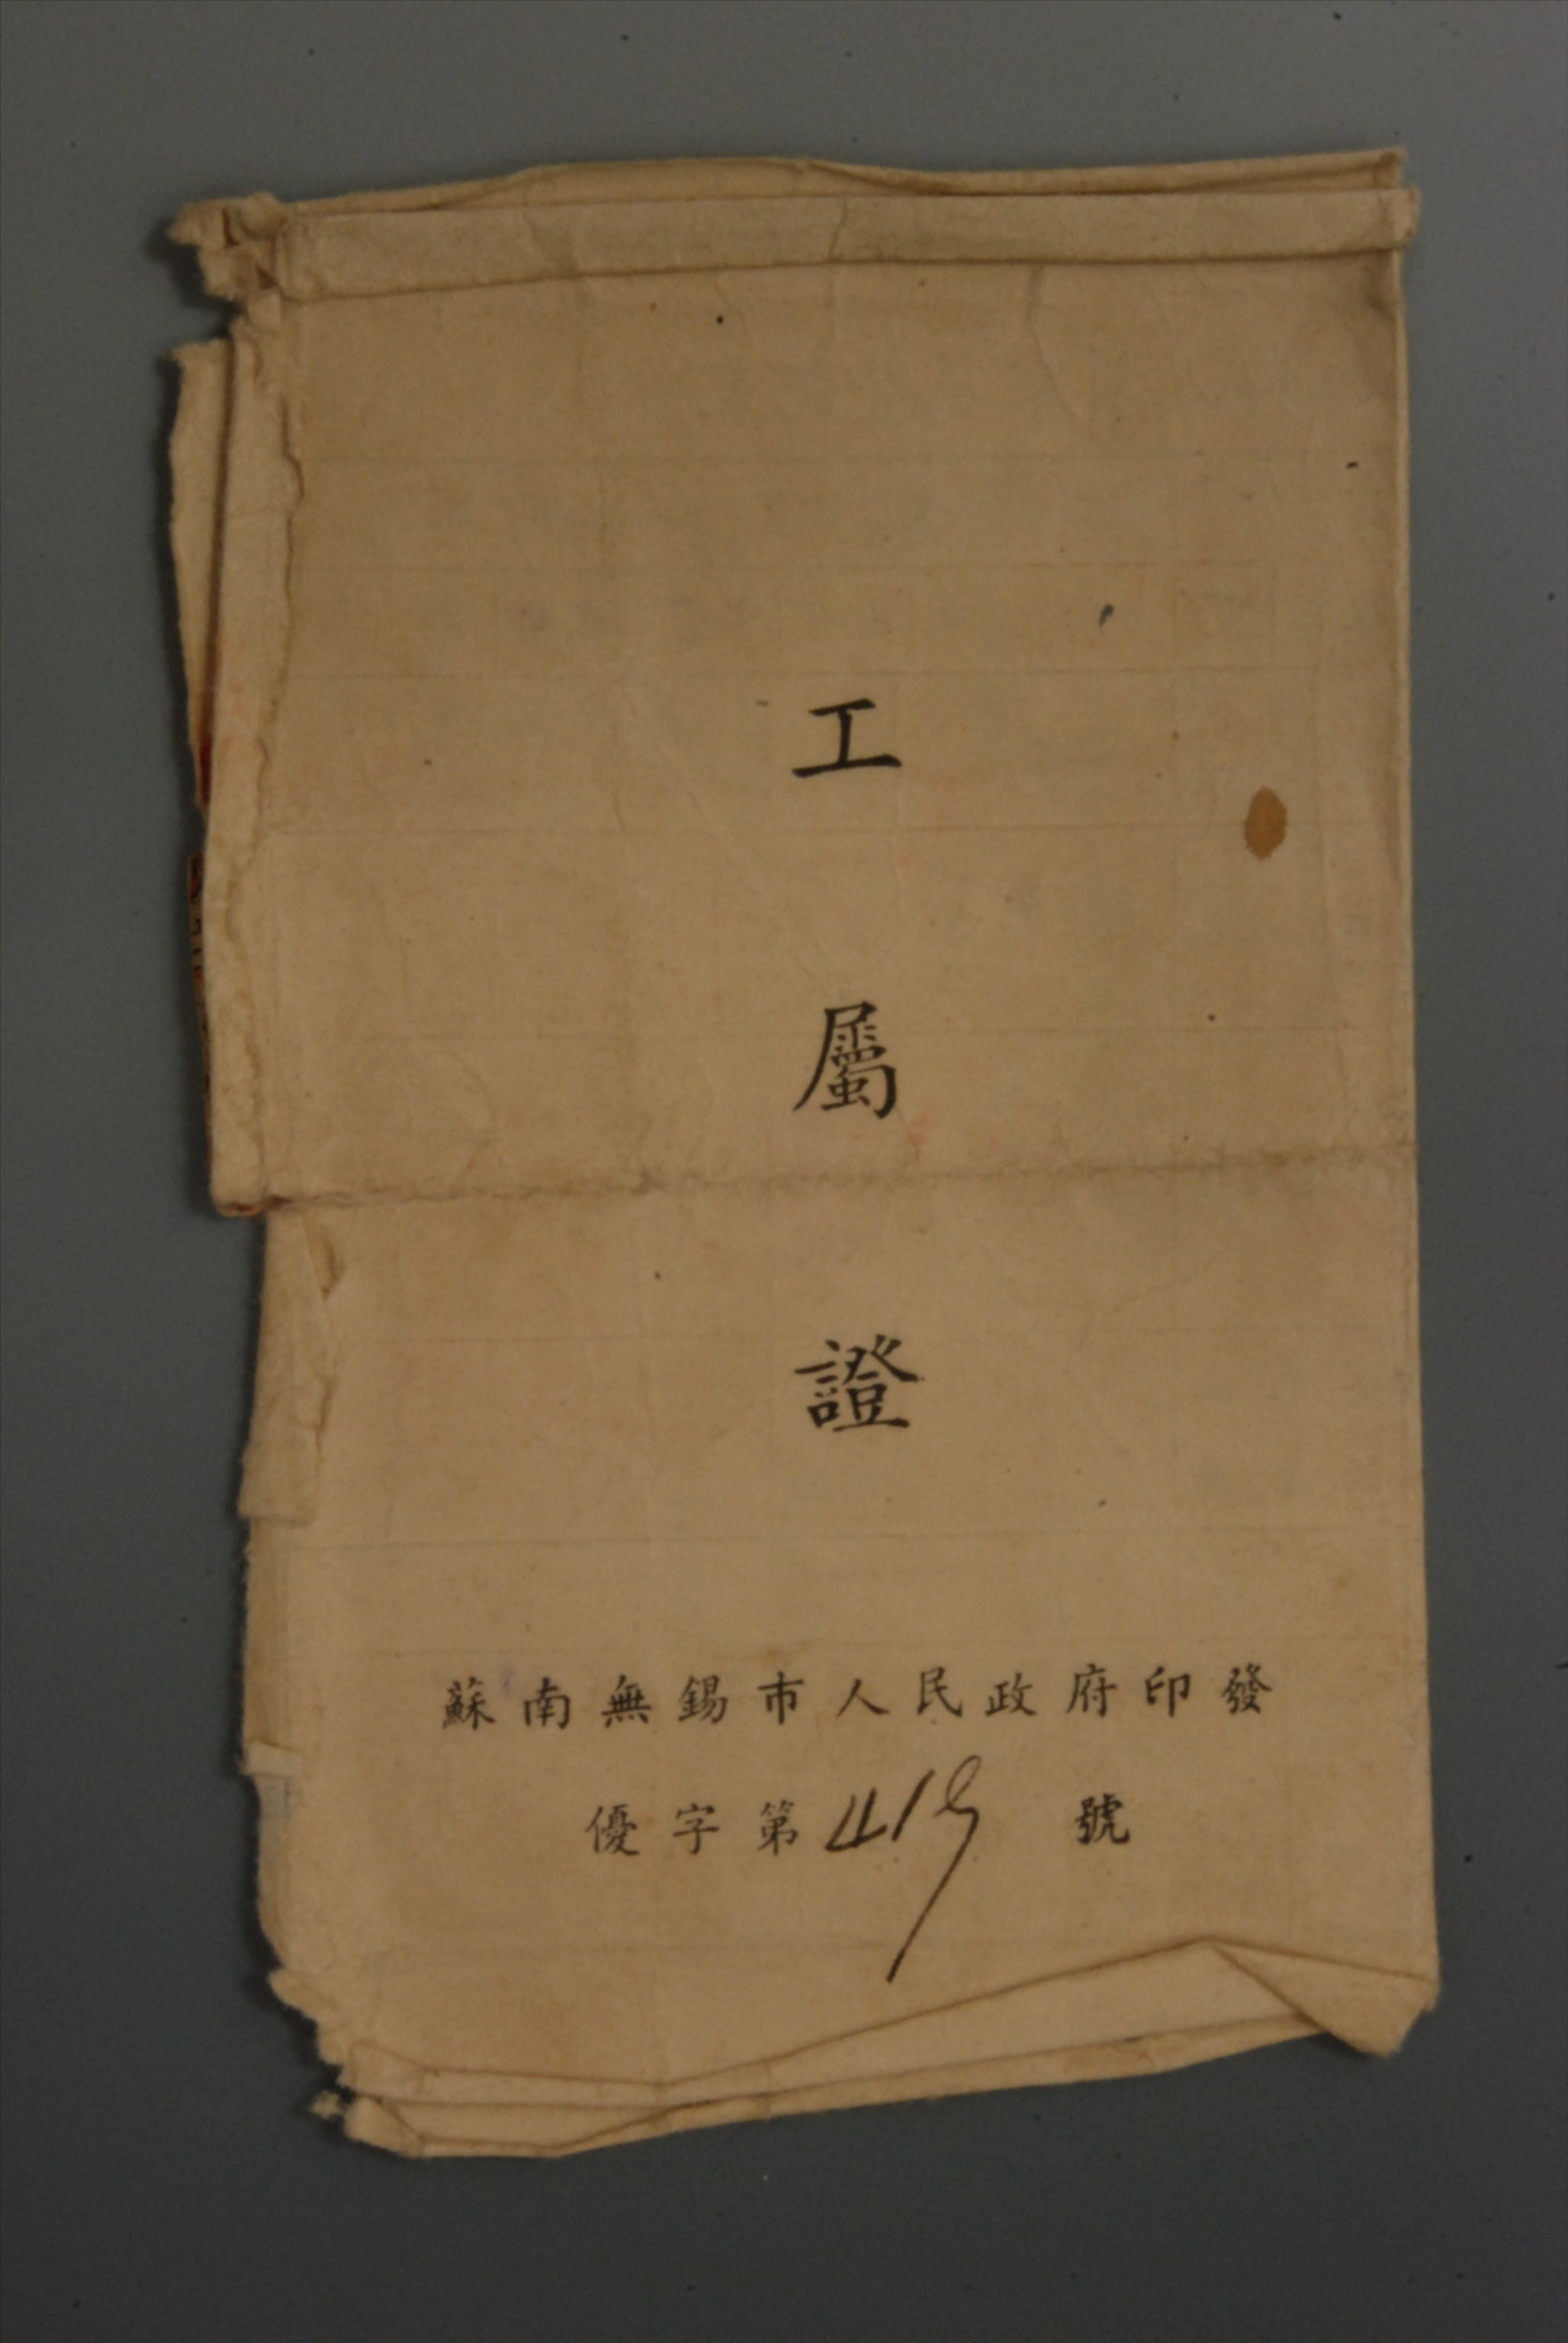 工屬證
蘇南無錫市人民政府印發
優字第419號